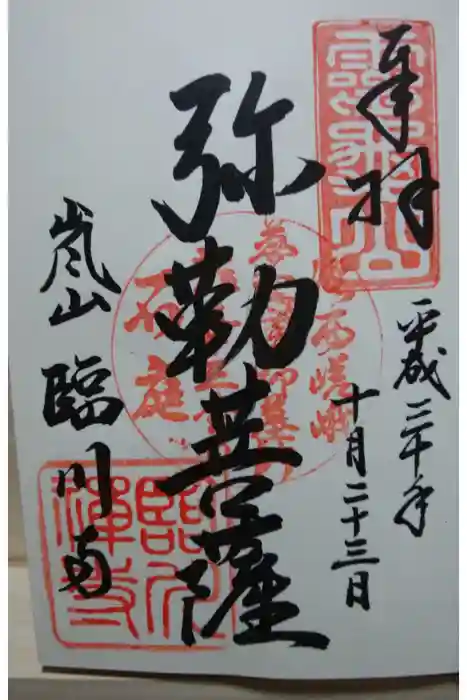 奉拝
平成三十年
十月二十三日
弥勒菩薩
嵐山 臨川寺
臨川禅寺